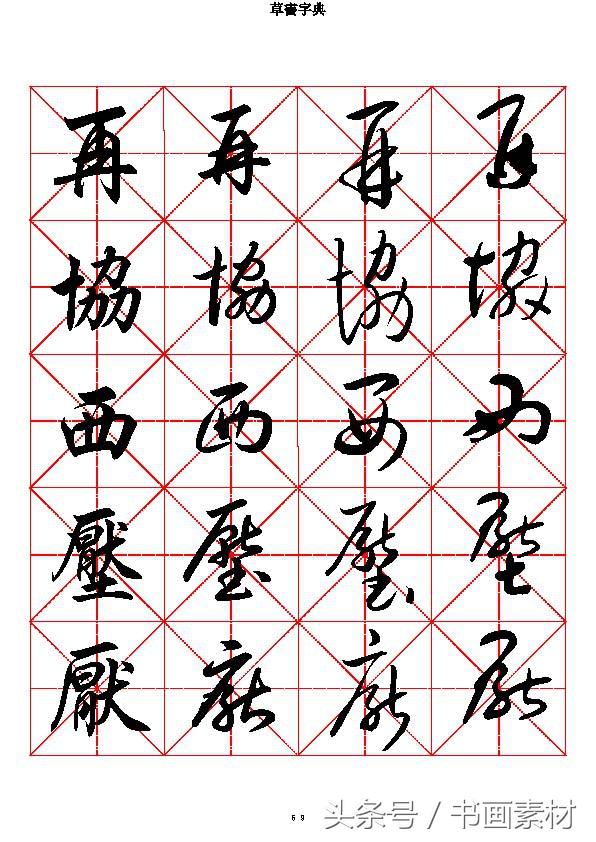 草書字典
再 再 再 再
協 協 協 協
西 西 西 西
壓 壓 壓 壓
厭 厭 厭 厭
69
头条号 / 书画素材